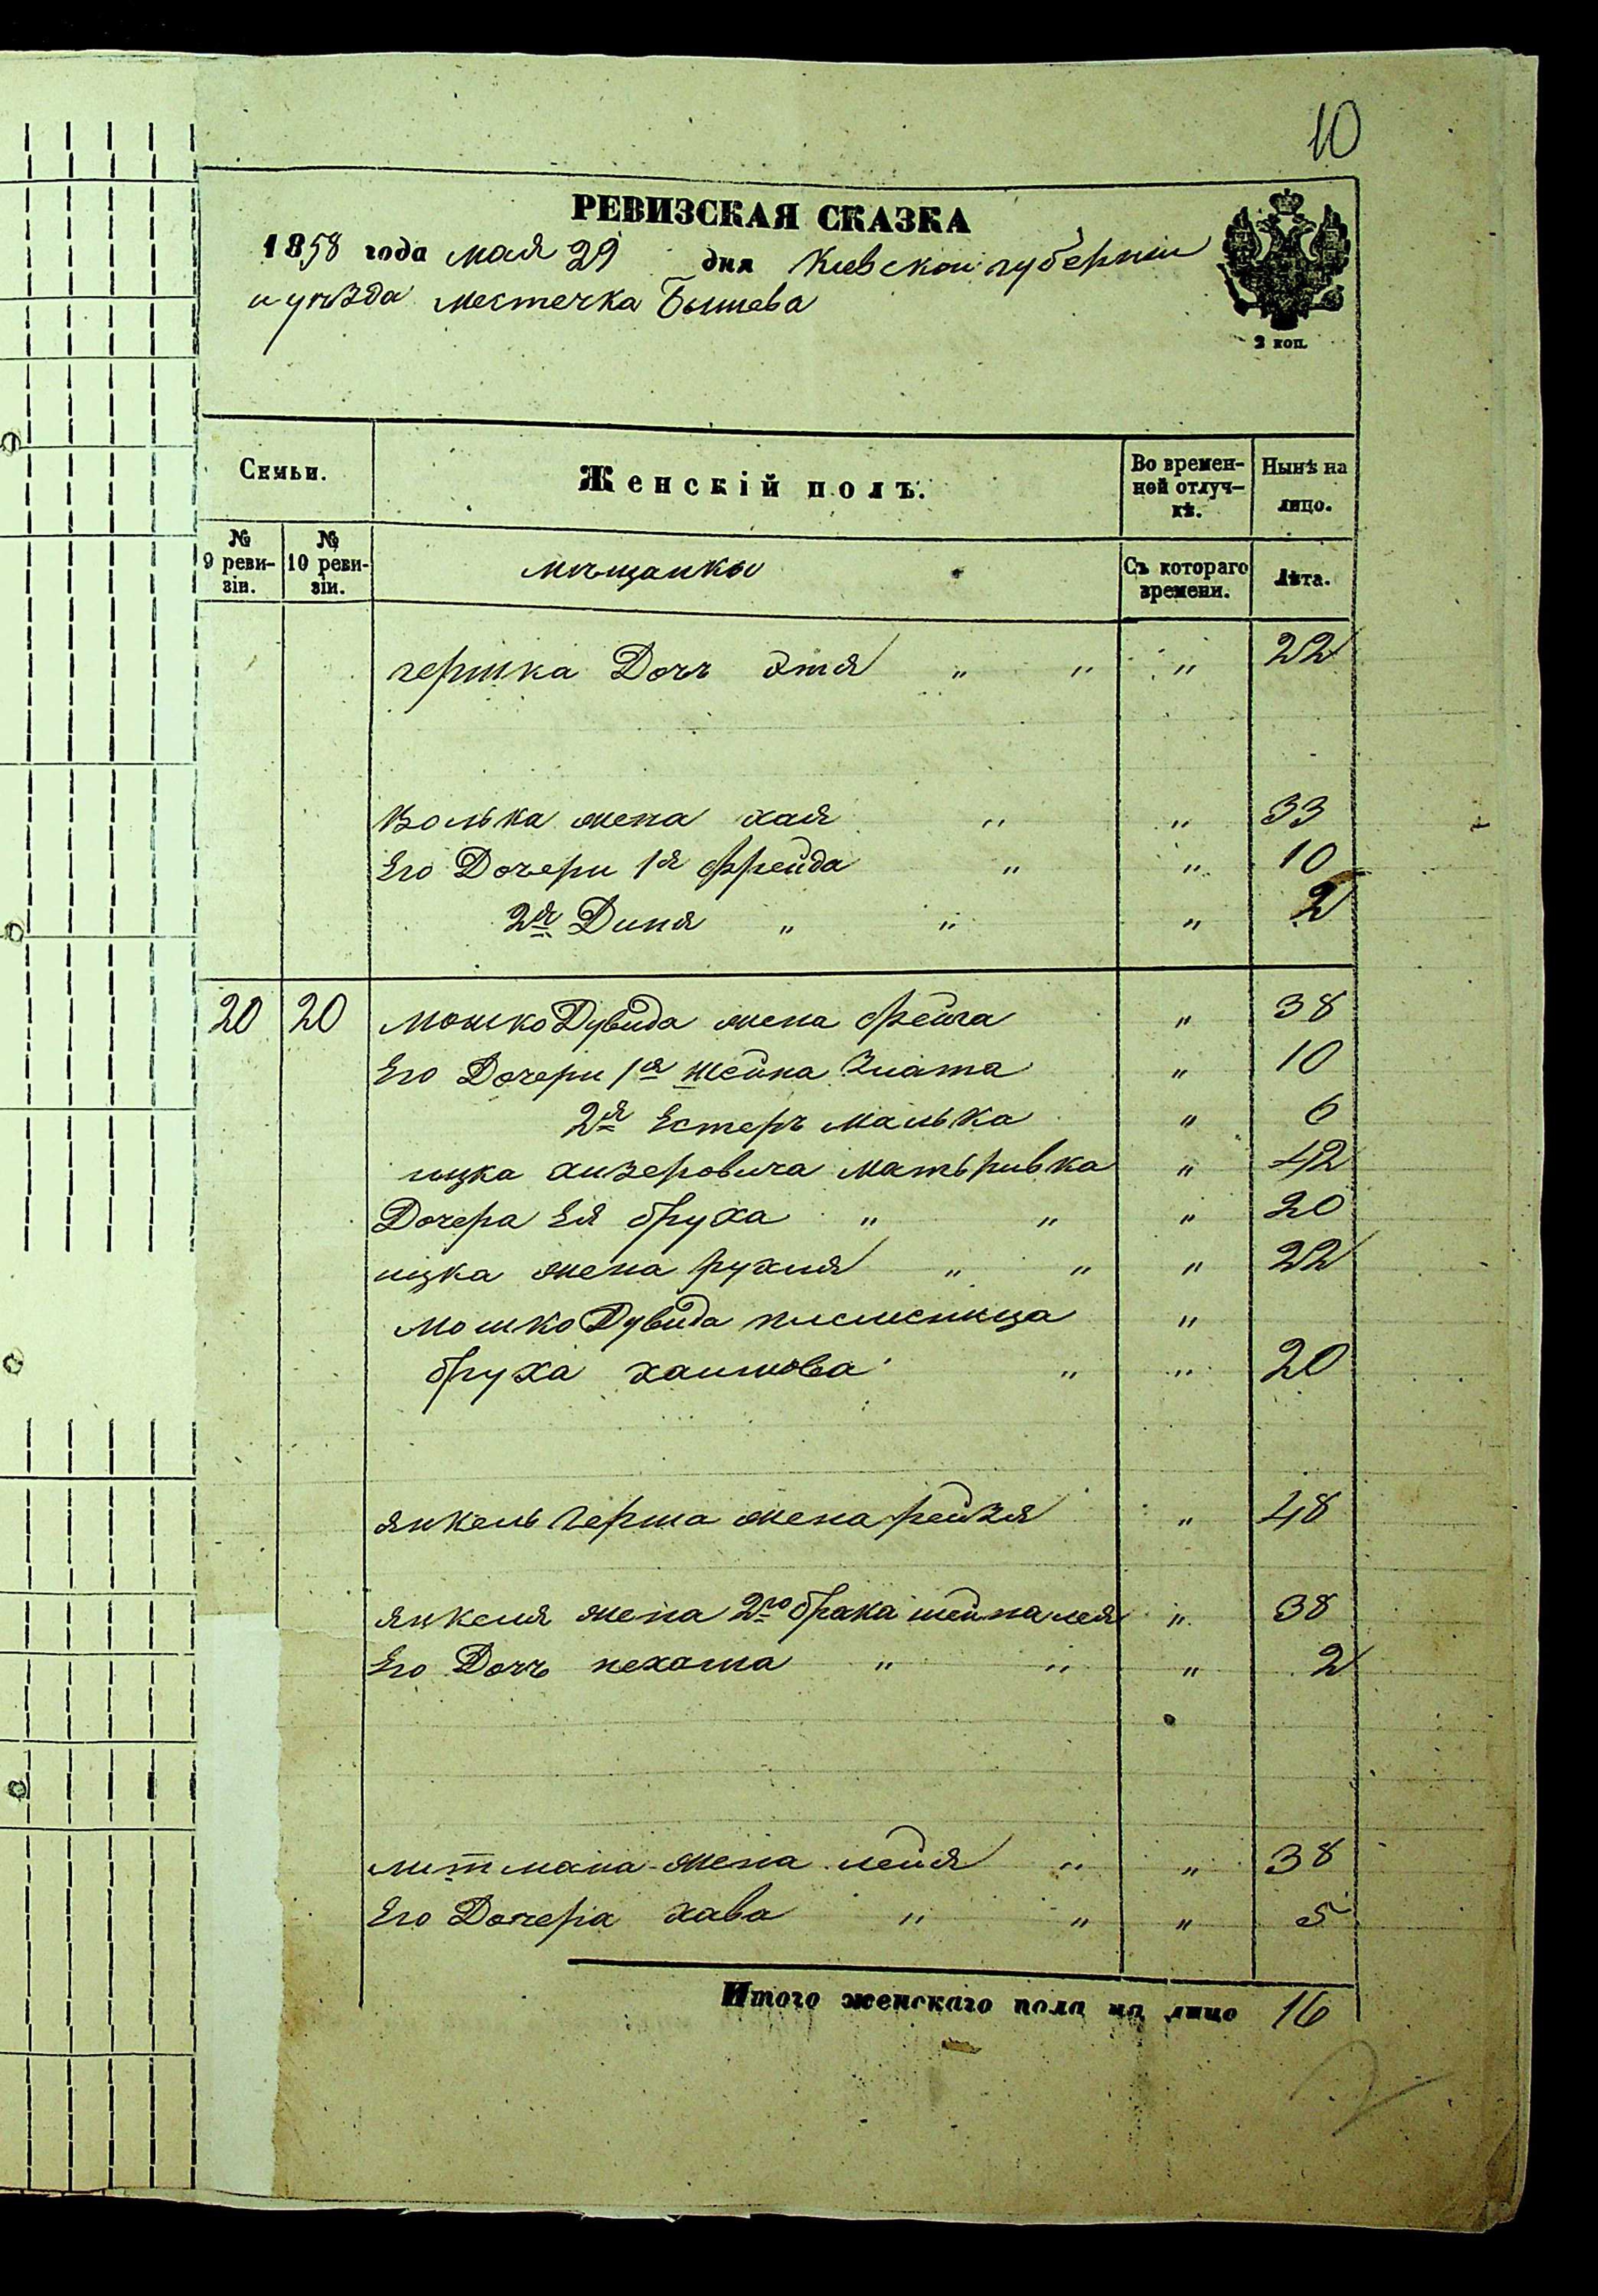 10
РЕВИЗСКАЯ СКАЗКА
1858 года мая 29 дня Киевской губернии
и уѣзда местечка Бышева
2 коп.
Семьи. Женскій полъ. Во времен-ной отлуч-кѣ. Нынѣ на лицо.
№ 9 реви-зіи. № 10 реви-зіи. мѣщанки Съ котораго времени. Лѣта.
гершка Дочь Этя " " " 22
Волька жена хая " " 33
Его Дочери 1я фрейда " " 10
2я Диня " " " 2
20 20 Мошко Дувида жена фейга " 38
Его Дочери 1я Шейна Злата " 10
2я Естеръ Малька " 6
ицка лизеровича мать ривка " 42
Дочера Ея бруха " " " 20
ицка жена рухля " " " 22
Мошко Дувида племеница "
бруха хаимова " " 20
янкель Герша жена рейзя " 48
янкеля жена 2го брака шейна лея " 38
Его Дочь нехама " " " 2
литмана жена лейя " " 38
Его Дочера хава " " " 5
Итого женскаго пола на лицо 16